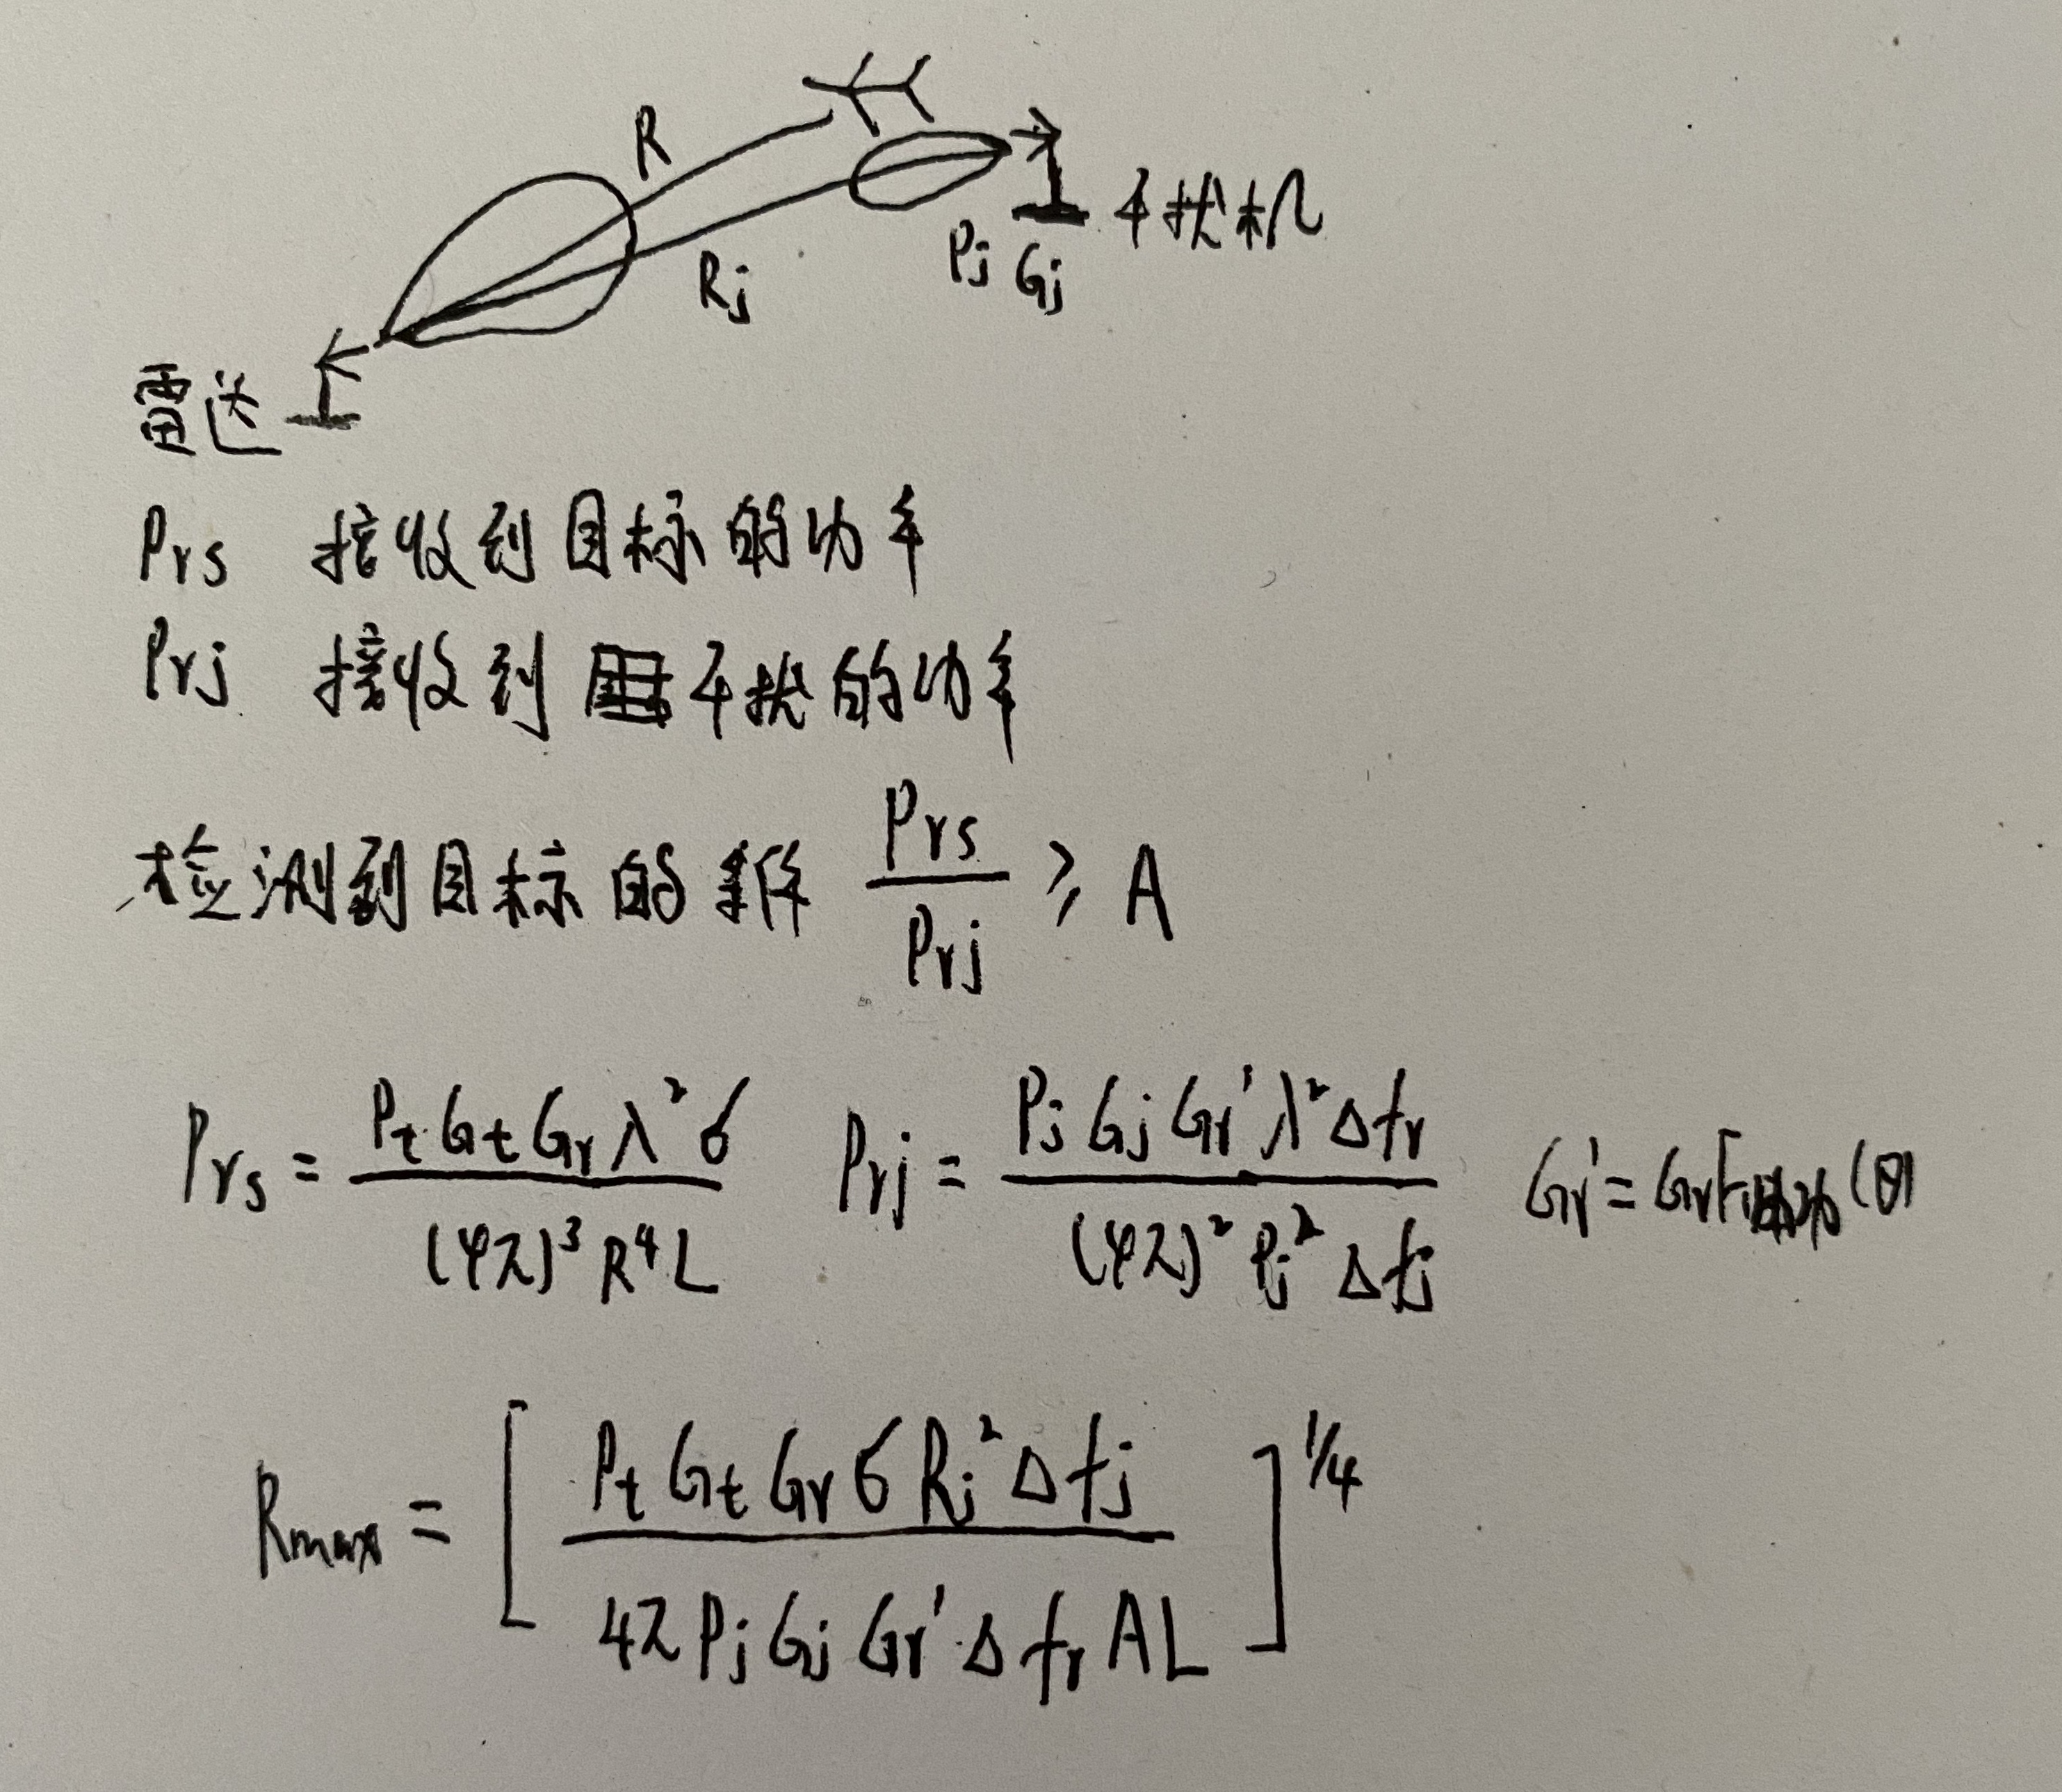 R
干扰机
Rj Pj Gj
雷达
Prs 接收到目标的功率
Prj 接收到干扰的功率
检测到目标的条件 Prs/Prj ≥ A
Prs = PtGtGrλ²σ/(4π)³R⁴L Prj = PjGjGr'λ²Δfr/(4π)²Pj²Δfj Gr' = GrF(θ)
Rmax = [PtGtGrσRj²Δfj/4πPjGjGr'ΔfrAL]^1/4